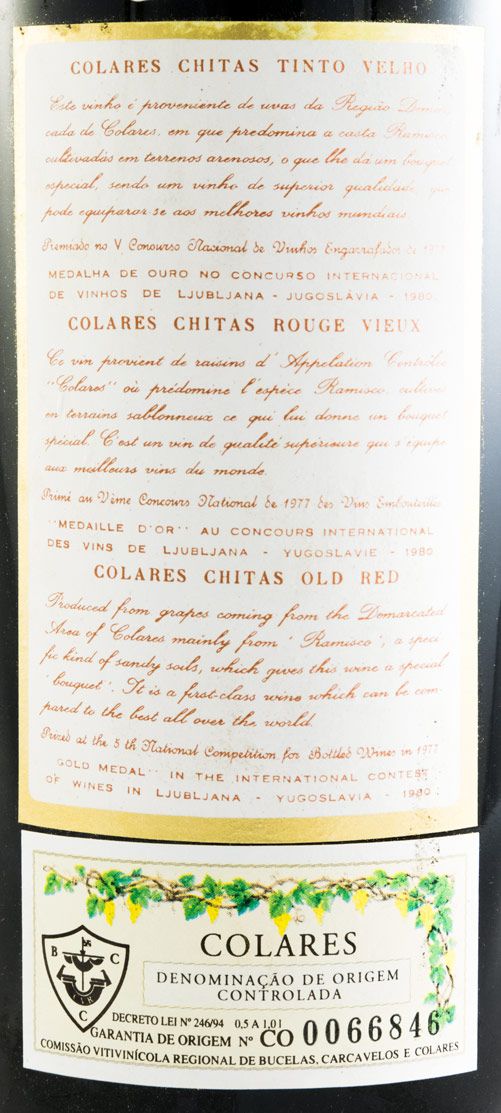 COLARES CHITAS TINTO VELHO
Este vinho é proveniente de uvas da Região Demar-
cada de Colares, em que predomina a casta Ramisco,
cultivadas em terrenos arenosos, o que lhe dá um bouquet
especial, sendo um vinho de superior qualidade, que
pode equiparar-se aos melhores vinhos mundiais.
Premiado no V Concurso Nacional de Vinhos Engarrafados de 1977
MEDALHA DE OURO NO CONCURSO INTERNACIONAL
DE VINHOS DE LJUBLJANA - JUGOSLÁVIA - 1980.
COLARES CHITAS ROUGE VIEUX
Ce vin provient de raisins d'Appelation Contrôlée
"Colares" où prédomine l'espèce Ramisco, cultivés
en terrains sablonneux ce qui lui donne un bouquet
spécial. C'est un vin de qualité supérieure qui s'équipe
aux meilleurs vins du monde.
Primé au Vème Concours National de 1977 des Vins Embouteillés
"MEDAILLE D'OR" AU CONCOURS INTERNATIONAL
DES VINS DE LJUBLJANA - YUGOSLAVIE - 1980
COLARES CHITAS OLD RED
Produced from grapes coming from the Demarcated
Area of Colares mainly from 'Ramisco', a speci-
fic kind of sandy soils, which gives this wine a special
'bouquet'. It is a first-class wine which can be com-
pared to the best all over the world.
Prized at the 5th National Competition for Bottled Wines in 1977
GOLD MEDAL" IN THE INTERNATIONAL CONTEST
OF WINES IN LJUBLJANA - YUGOSLAVIA - 1980
B C
C
COLARES
DENOMINAÇÃO DE ORIGEM
CONTROLADA
DECRETO LEI Nº 246/94 0,5 A 1,0 l
GARANTIA DE ORIGEM Nº CO 0066846
COMISSÃO VITIVINÍCOLA REGIONAL DE BUCELAS, CARCAVELOS E COLARES